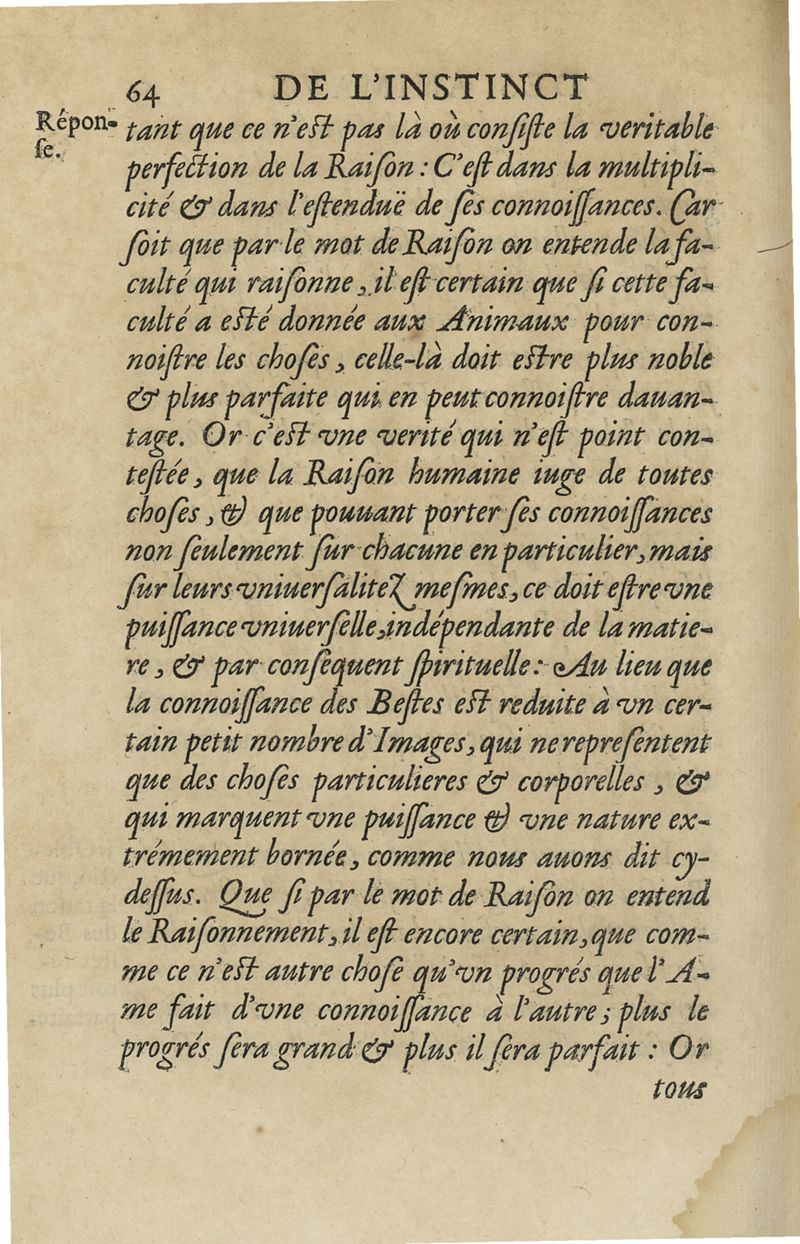 64 DE L'INSTINCT
Répon-
ſe.
tant que ce n'eſt pas là où conſiſte la veritable
perfection de la Raiſon : C'eſt dans la multipli-
cité & dans l'eſtenduë de ſes connoiſſances. Car
ſoit que par le mot de Raiſon on entende la fa-
culté qui raiſonne, il eſt certain que ſi cette fa-
culté a eſté donnée aux Animaux pour con-
noiſtre les choſes, celle-là doit eſtre plus noble
& plus parfaite qui en peut connoiſtre dauan-
tage. Or c'eſt vne verité qui n'eſt point con-
teſtée, que la Raiſon humaine iuge de toutes
choſes, & que pouuant porter ſes connoiſſances
non ſeulement ſur chacune en particulier, mais
ſur leurs vniuerſalitez meſmes, ce doit eſtre vne
puiſſance vniuerſelle, indépendante de la matie-
re, & par conſequent ſpirituelle : Au lieu que
la connoiſſance des Beſtes eſt reduite à vn cer-
tain petit nombre d'Images, qui ne repreſentent
que des choſes particulieres & corporelles, &
qui marquent vne puiſſance & vne nature ex-
trémement bornée, comme nous auons dit cy-
deſſus. Que ſi par le mot de Raiſon on entend
le Raiſonnement, il eſt encore certain, que com-
me ce n'eſt autre choſe qu'vn progrés que l'A-
me fait d'vne connoiſſance à l'autre ; plus le
progrés ſera grand & plus il ſera parfait : Or
tous